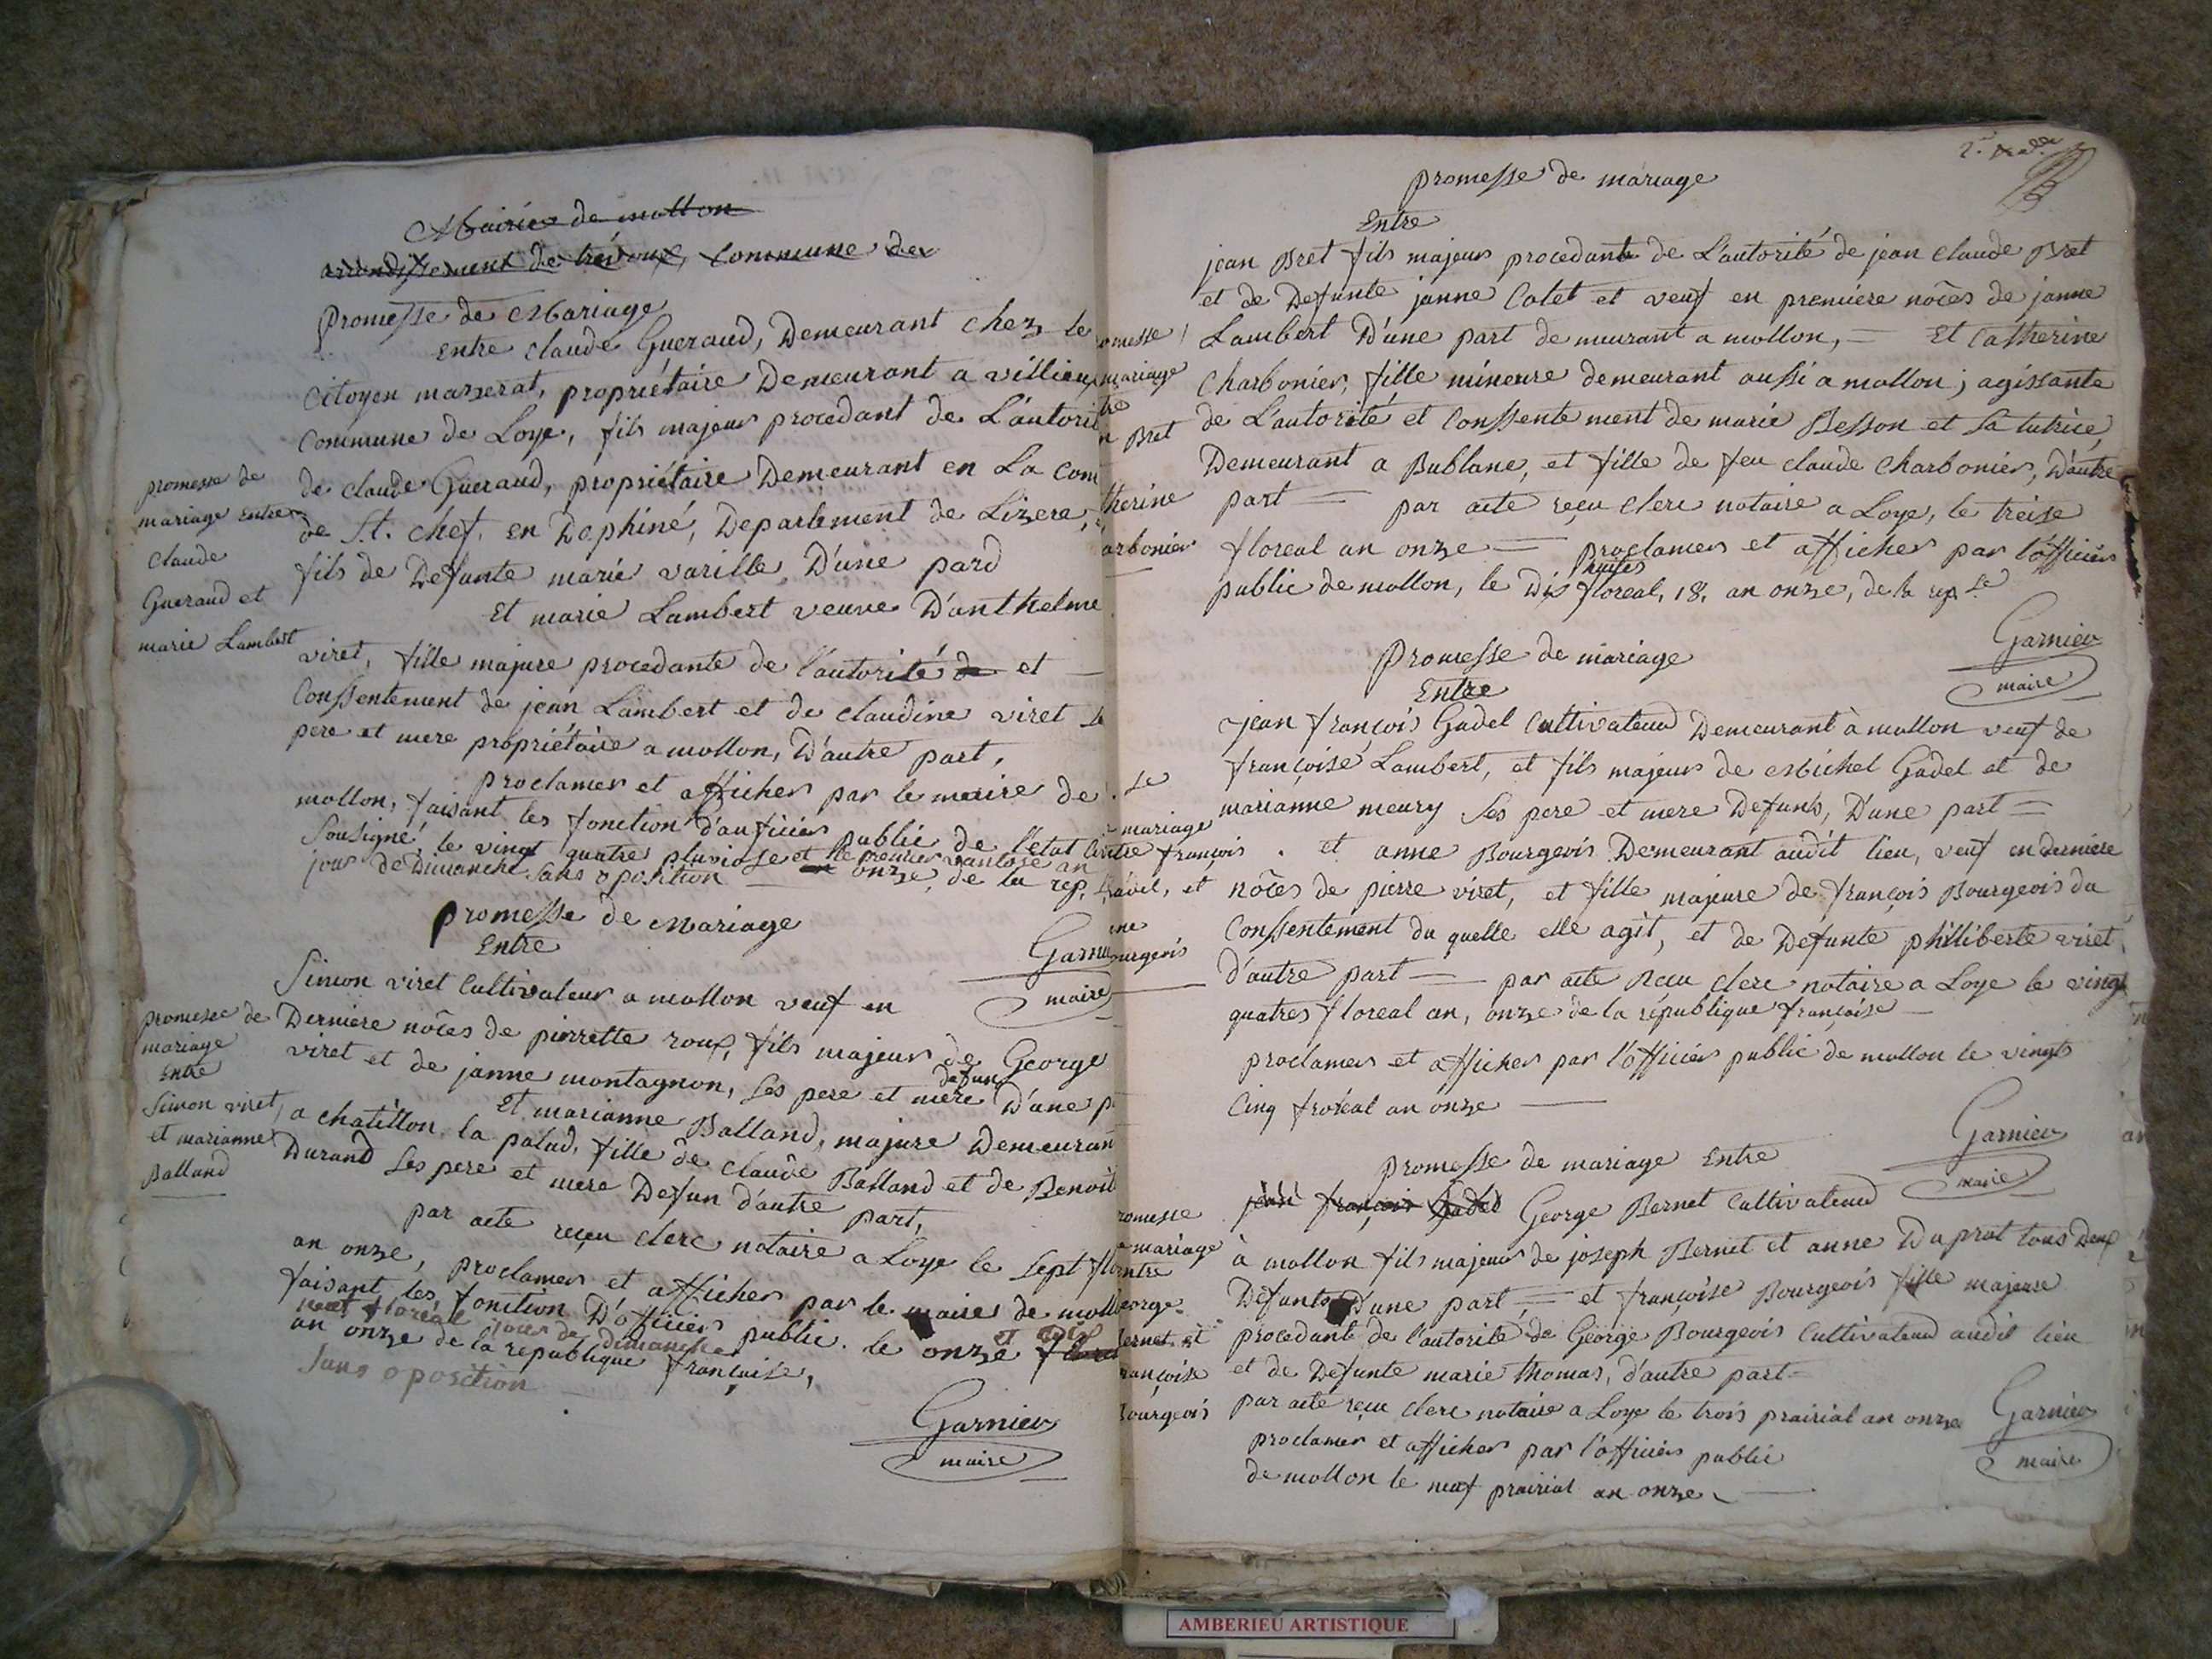 Mairie de mollon
arrondissement de trévoux, Commune de
Promesse de Mariage
Entre claude Gueraud, Demeurant chez le
Citoyen marserat, propriétaire Demeurant a villieu
Commune de Loye, fils majeur procedant de L'autorit
de claude Gueraud, propriétaire Demeurant en La com
de St. chef, en Dophiné, Departement de Lizere,
fils de Defunte marie varille, D'une pard
Et marie Lambert veuve D'anthelme
viret, fille majure procedante de l'autorité de et
Conssentement de jean Lambert et de claudine viret
pere et mere propriétaire a mollon, D'autre part,
proclamer et afficher par le maire de
mollon, faisant les fonction d'auficier public de l'état
Sousigné, le vingt quatre pluviose et le premier vantose an
jour de Dimanche Sans oposition onze, de la rep.
promesse de
mariage entre
claude
Gueraud et
marie Lambert
Garnier
maire
promesse de Mariage
Entre
Simon viret Cultivateur a mollon veuf en
Derniere nôces de pierrette roux, fils majeur de George
viret et de janne montagnon, ses pere et mere defun D'une p
Et marianne Balland, majure Demeuran
a chatillon la palud, fille de claude Balland et de Benoit
Durand ses pere et mere Defun d'autre part,
par acte reçu clerc notaire a Loye le sept flo
an onze, proclamer et afficher par le maire de moll
faisant les fonction D'officier public. le onze et
neuf floréal jour de dimanche
an onze de la republique française,
Sans oposition
promesse de
mariage
Entre
Simon viret
et marianne
Balland
Garnier
maire
promesse de mariage
Entre
jean Bret fils majeur procedant de L'autorité de jean claude Bret
et de Defunte janne Catet et veuf en premiere nôces de janne
Lambert D'une part demeurant a mollon, = Et Catherine
Charbonier, fille mineure demeurant aussi a mollon; agissante
de L'autorité et Conssentement de marie Besson et Sa tutrice,
Demeurant a Bublane, et fille de feu claude Charbonier, D'autre
part = par acte reçu clerc notaire a Loye, le treise
floreal an onze = proclamer et afficher par l'officier
public de mollon, le Dix huites floreal, 18, an onze, de la rep.
omesse
mariage
tre
n Bret
therine
arbonier
Garnier
maire
Promesse de mariage
Entre
jean françois Gadel Cultivateur Demeurant à mollon veuf de
françoise Lambert, et fils majeur de Michel Gadel et de
marianne meury Ses pere et mere Defunts, D'une part =
et anne Bourgeois Demeurant audit lieu, veuf en derniere
nôces de pierre viret, et fille majeure de françois Bourgeois du
Conssentement du quelle elle agit, et de Defunte philliberte viret,
d'autre part = par acte Recu clerc notaire a Loye le vingt
quatres floreal an, onze de la république françoise
proclamer et afficher par l'officier public de mollon le vingt
Cinq froréal an onze
mariage
entre
françois
Gadel, et
urgeois
Garnier
maire
promesse de mariage Entre
jean françois Gadel George Bernet Cultivateur
à mollon fils majeur de joseph Bernet et anne Duprat tous Deux
Defunts D'une part = et françoise Bourgeois fille majeure
procedante de l'autorité de George Bourgeois Cultivateur audit lieu
et de Defunte marie thomas, d'autre part =
par acte reçu clerc notaire a Loye le trois prairial an onze
proclamer et afficher par l'officier public
de mollon le neuf prairial an onze
romesse
mariage
entre
eorge
ernet et
rançoise
ourgeois
Garnier
maire
AMBERIEU ARTISTIQUE